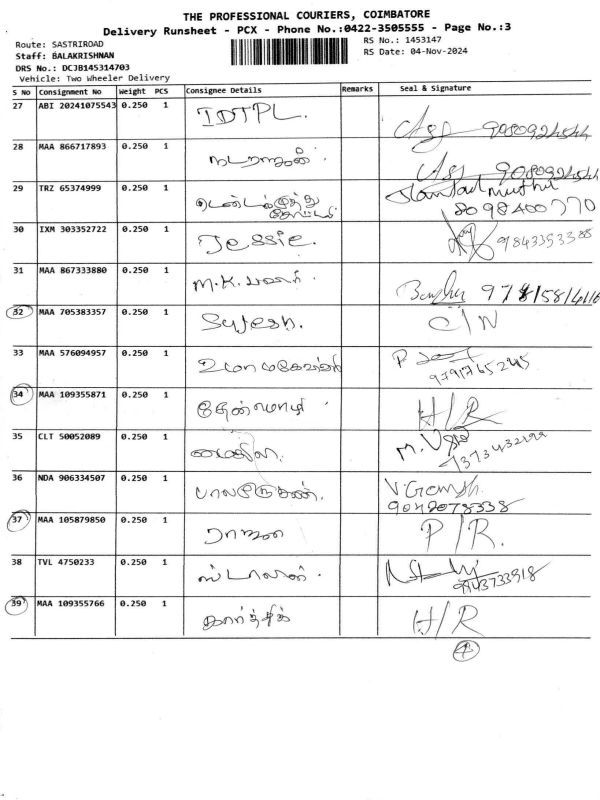 THE PROFESSIONAL COURIERS, COIMBATORE
Delivery Runsheet - PCX - Phone No.:0422-3505555 - Page No.:3
Route: SASTRIROAD
RS No.: 1453147
Staff: BALAKRISHNAN
RS Date: 04-Nov-2024
DRS No.: DCJB145314703
Vehicle: Two Wheeler Delivery
S No Consignment No Weight PCS Consignee Details Remarks Seal & Signature
27 ABI 20241075543 0.250 1 IDTPL.
28 MAA 866717893 0.250 1 நடராஜன்.
29 TRZ 65374999 0.250 1
8098400770
30 IXM 303352722 0.250 1 Jessie. 9843353388
31 MAA 867333880 0.250 1 M.K.
32 MAA 705383357 0.250 1 Sujesh. C/N
33 MAA 576094957 0.250 1 உமாமகேஸ்வரி P
9791765245
34 MAA 109355871 0.250 1 தேன்மொழி H/R
35 CLT 50052089 0.250 1 M.
36 NDA 906334507 0.250 1 பாலமுருகன். V.Ganesh.
9042078338
37 MAA 105879850 0.250 1 P/R.
38 TVL 4750233 0.250 1 ஸ்டாலின்.
9943733918
39 MAA 109355766 0.250 1 கார்த்திக் H/R
4